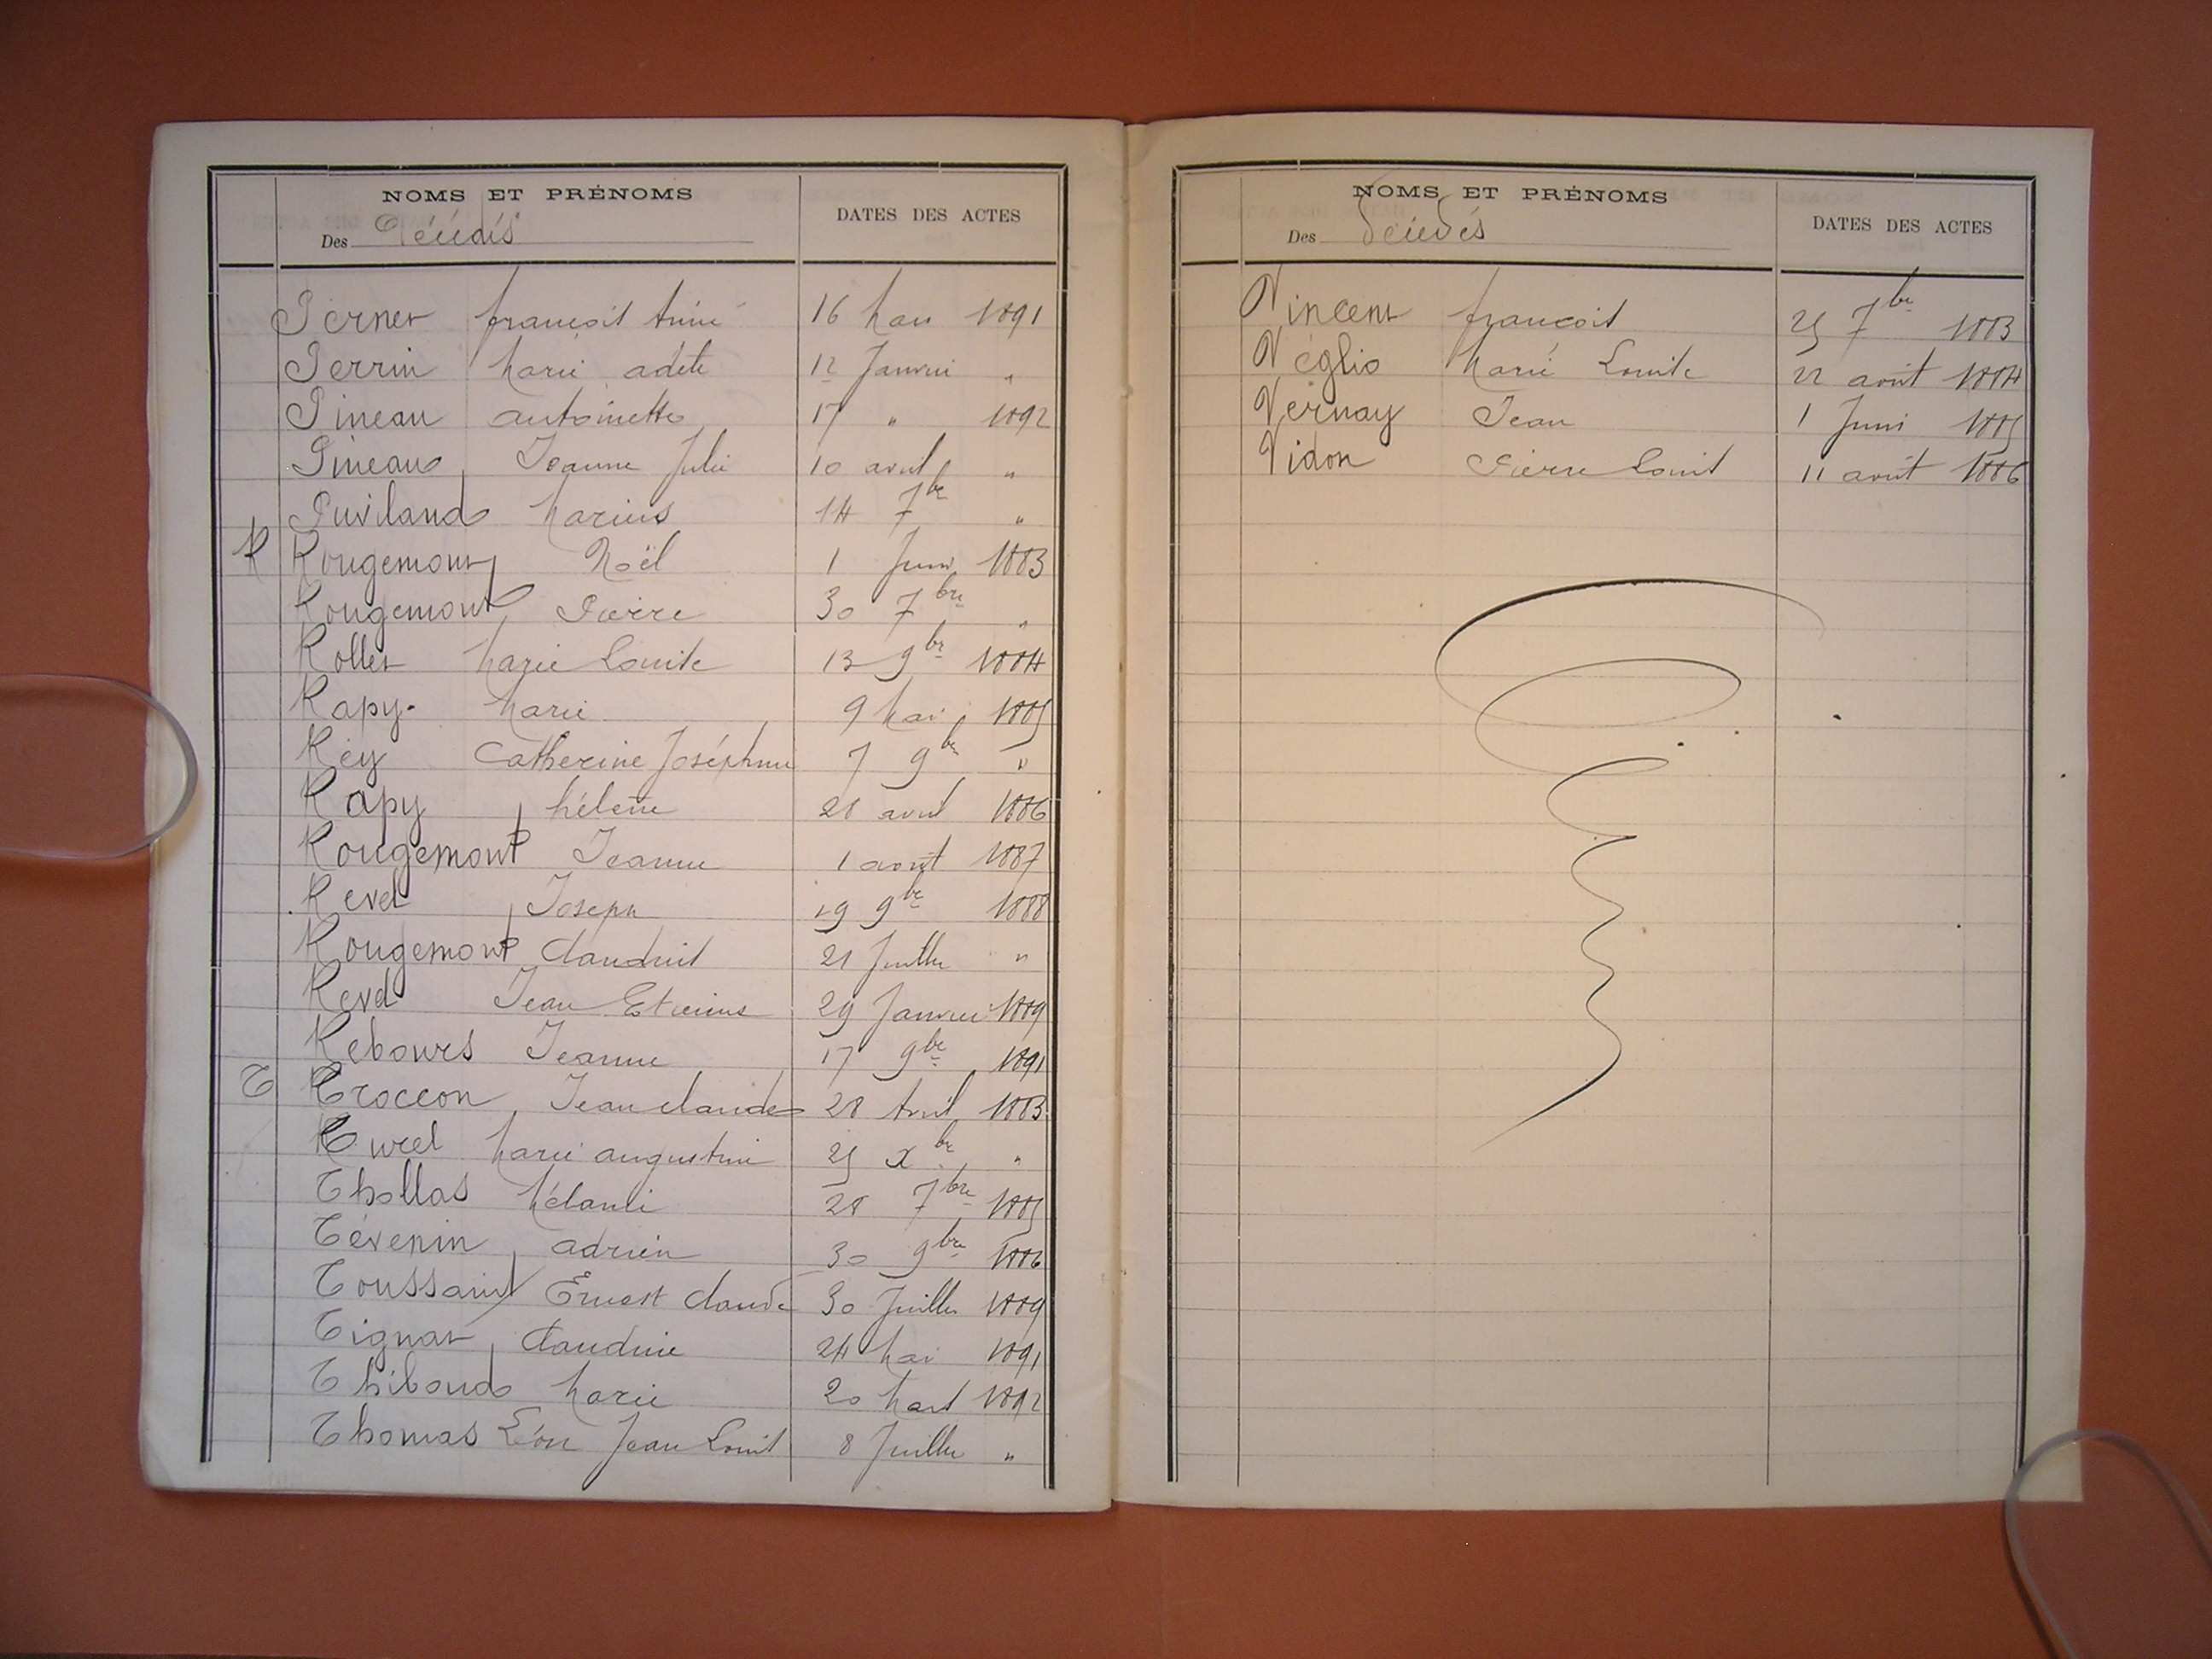 NOMS ET PRÉNOMS
Des Décédés
DATES DES ACTES
Pernet françois Aimé 16 Mars 1891
Perrin Marie adèle 12 Janvier "
Pineau antoinette 17 " 1892
Pineau Jeanne Julie 10 avril "
Puviland Marius 14 7bre "
R Rougemont Noël 1 Juin 1883
Rougemont Pierre 30 7bre "
Rollet Marie Louise 13 9bre 1884
Rapy Marie 9 Mai 1885
Rey Catherine Joséphine 7 9bre "
Rapy hélène 28 avril 1886
Rougemont Jeanne 1 août 1887
Revel Joseph 19 9bre 1888
Rougemont Claudius 21 Juillet "
Revel Jean Etienne 29 Janvier 1889
Rebours Jeanne 17 9bre 1891
T Troccon Jean claude 28 Avril 1883
Turel Marie augustine 25 Xbre "
Thollas Mélanie 28 7bre 1885
Tévenin adrien 30 9bre 1886
Toussaint Ernest Claude 30 Juillet 1889
Tignat Claudine 24 Mai 1891
Thiboud Marie 20 Mars 1892
Thomas Léon Jean Louis 8 Juillet "
NOMS ET PRÉNOMS
Des Décédés
DATES DES ACTES
Vincent françois 25 7bre 1883
Véglio Marie Louise 22 août 1884
Vernay Jean 1 Juin 1885
Vidon Pierre Louis 11 août 1886